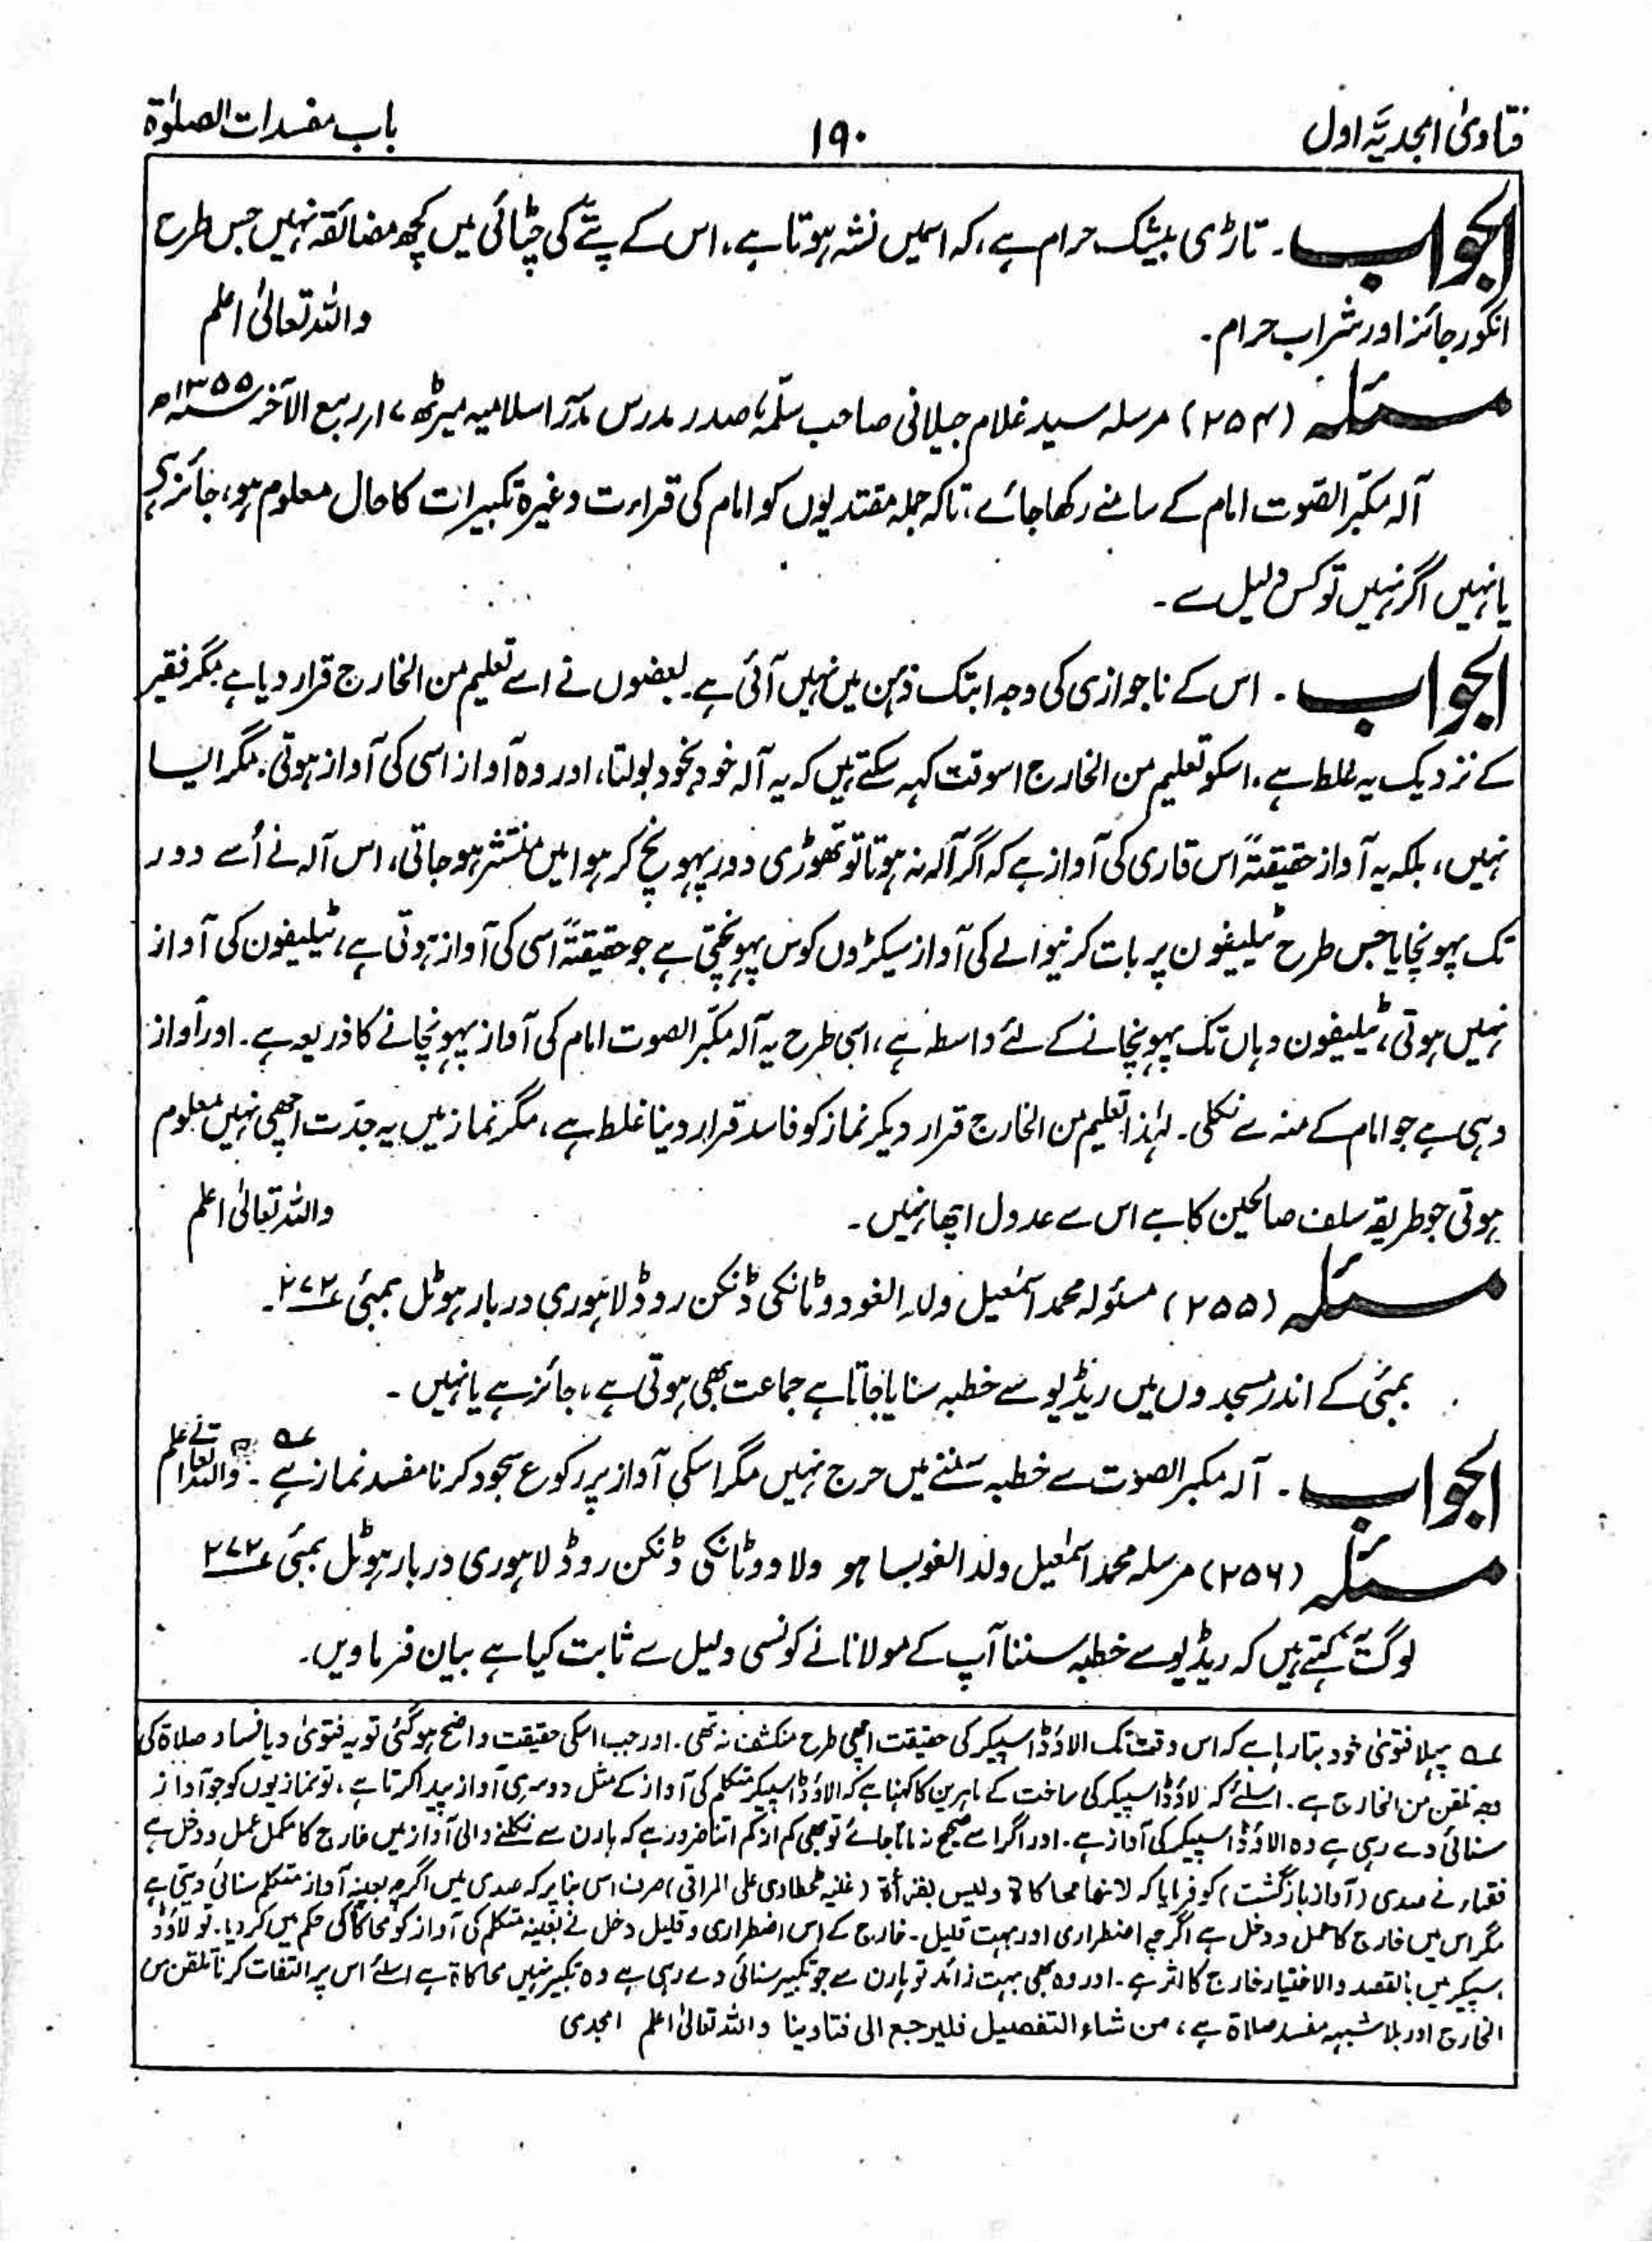 فتاویٰ امجدیہ اول
۱۹۰
باب مفسدات الصلوٰۃ
الجواب۔ تاڑی بیشک حرام ہے، کہ اسمیں نشہ ہوتا ہے، اس کے پتے کی چٹائی میں کچھ مضائقہ نہیں جس طرح
انگور جائز اور شراب حرام۔ واللہ تعالیٰ اعلم
مسئلہ (۲۵۴) مرسلہ سید غلام جیلانی صاحب سلّمہٗ صدر مدرس مدرسہ اسلامیہ میرٹھ ۱۷ ربیع الآخر ۱۳۵۵ھ
آلہ مکبّر الصّوت امام کے سامنے رکھا جائے، تاکہ جملہ مقتدیوں کو امام کی قراءت وغیرہ تکبیرات کا حال معلوم ہو، جائز ہے
یا نہیں اگر نہیں تو کس دلیل سے۔
الجواب۔ اس کے ناجوازی کی وجہ ابتک ذہن میں نہیں آئی ہے۔ بعضوں نے اسے تعلیم من الخارج قرار دیا ہے مگر فقیر
کے نزدیک یہ غلط ہے، اسکو تعلیم من الخارج اسوقت کہہ سکتے ہیں کہ یہ آلہ خود بخود بولتا، اور وہ آواز اسی کی آواز ہوتی، مگر ایسا
نہیں، بلکہ یہ آواز حقیقۃً اس قاری کی آواز ہے کہ اگر آلہ نہ ہوتا تو تھوڑی دور پہونچ کر ہوا میں منتشر ہو جاتی، اس آلہ نے اُسے دور
تک پہونچایا جس طرح ٹیلیفون پر بات کرنیوالے کی آواز سیکڑوں کوس پہونچتی ہے جو حقیقۃً اسی کی آواز ہوتی ہے، ٹیلیفون کی آواز
نہیں ہوتی، ٹیلیفون وہاں تک پہونچانے کے لئے واسطہ ہے، اسی طرح یہ آلہ مکبّر الصوت امام کی آواز پہونچانے کا ذریعہ ہے۔ اور آواز
وہی ہے جو امام کے منہ سے نکلی۔ لہٰذا تعلیم من الخارج قرار دیکر نماز کو فاسد قرار دینا غلط ہے، مگر نماز میں یہ جدّت اچھی نہیں معلوم
ہوتی جو طریقہ سلف صالحین کا ہے اس سے عدول اچھا نہیں۔ واللہ تعالیٰ اعلم
مسئلہ (۲۵۵) مسئولہ محمد اسمٰعیل ولد الغو دوٹانکی ڈنکن روڈ لاہوری دربار ہوٹل بمبئی ۲۷۲۔
بمبئی کے اندر مسجدوں میں ریڈیو سے خطبہ سنایا جاتا ہے جماعت بھی ہوتی ہے، جائز ہے یا نہیں۔
الجواب۔ آلہ مکبر الصوت سے خطبہ سننے میں حرج نہیں مگر اسکی آواز پر رکوع سجود کرنا مفسد نماز ہے۔ واللہ تعالیٰ اعلم
مسئلہ (۲۵۶) مرسلہ محمد اسمٰعیل ولد الغو بسا ہو ولا دوٹانکی ڈنکن روڈ لاہوری دربار ہوٹل بمبئی ۲۷۲
لوگ کہتے ہیں کہ ریڈیو سے خطبہ سننا آپ کے مولانا نے کونسی دلیل سے ثابت کیا ہے بیان فرماویں۔
پہلا فتویٰ خود بتا رہا ہے کہ اس وقت تک لاؤڈ اسپیکر کی حقیقت اچھی طرح منکشف نہ تھی۔ اور جب اسکی حقیقت واضح ہو گئی تو یہ فتویٰ دیا فساد صلاۃ کی
وجہ تلقن من الخارج ہے۔ اسلئے کہ لاؤڈ اسپیکر کی ساخت کے ماہرین کا کہنا ہے کہ لاؤڈ اسپیکر متکلم کی آواز کے مثل دوسری آواز پیدا کرتا ہے، تو نمازیوں کو جو آواز
سنائی دے رہی ہے وہ لاؤڈ اسپیکر کی آواز ہے۔ اور اگر اسے صحیح نہ مانا جائے تو بھی کم از کم اتنا ضرور ہے کہ ہارن سے نکلنے والی آواز میں خارج کا مکمل عمل و دخل ہے
فقہاء نے صدی (آواز بازگشت) کو فرمایا کہ لانھا محاکاۃ ولیس بقرأۃ (غنیہ طحطاوی علی المراقی) صرف اس بنا پر کہ صدی میں اگرچہ بعینہٖ آواز متکلم سنائی دیتی ہے
مگر اس میں خارج کا عمل و دخل ہے اگرچہ اضطراری اور بہت قلیل۔ خارج کے اس اضطراری و قلیل دخل نے بعینہٖ متکلم کی آواز کو محاکاۃ کی حکم میں کر دیا۔ تو لاؤڈ
سپیکر میں بالقصد والاختیار خارج کا اثر ہے۔ اور وہ بھی بہت زائد تو ہارن سے جو تکبیر سنائی دے رہی ہے وہ تکبیر نہیں محاکاۃ ہے اسلئے اس پر التفات کرنا تلقن من
الخارج اور بلا شبہہ مفسد صلاۃ ہے، من شاء التفصیل فلیرجع الی فتاوینا واللہ تعالیٰ اعلم امجدی